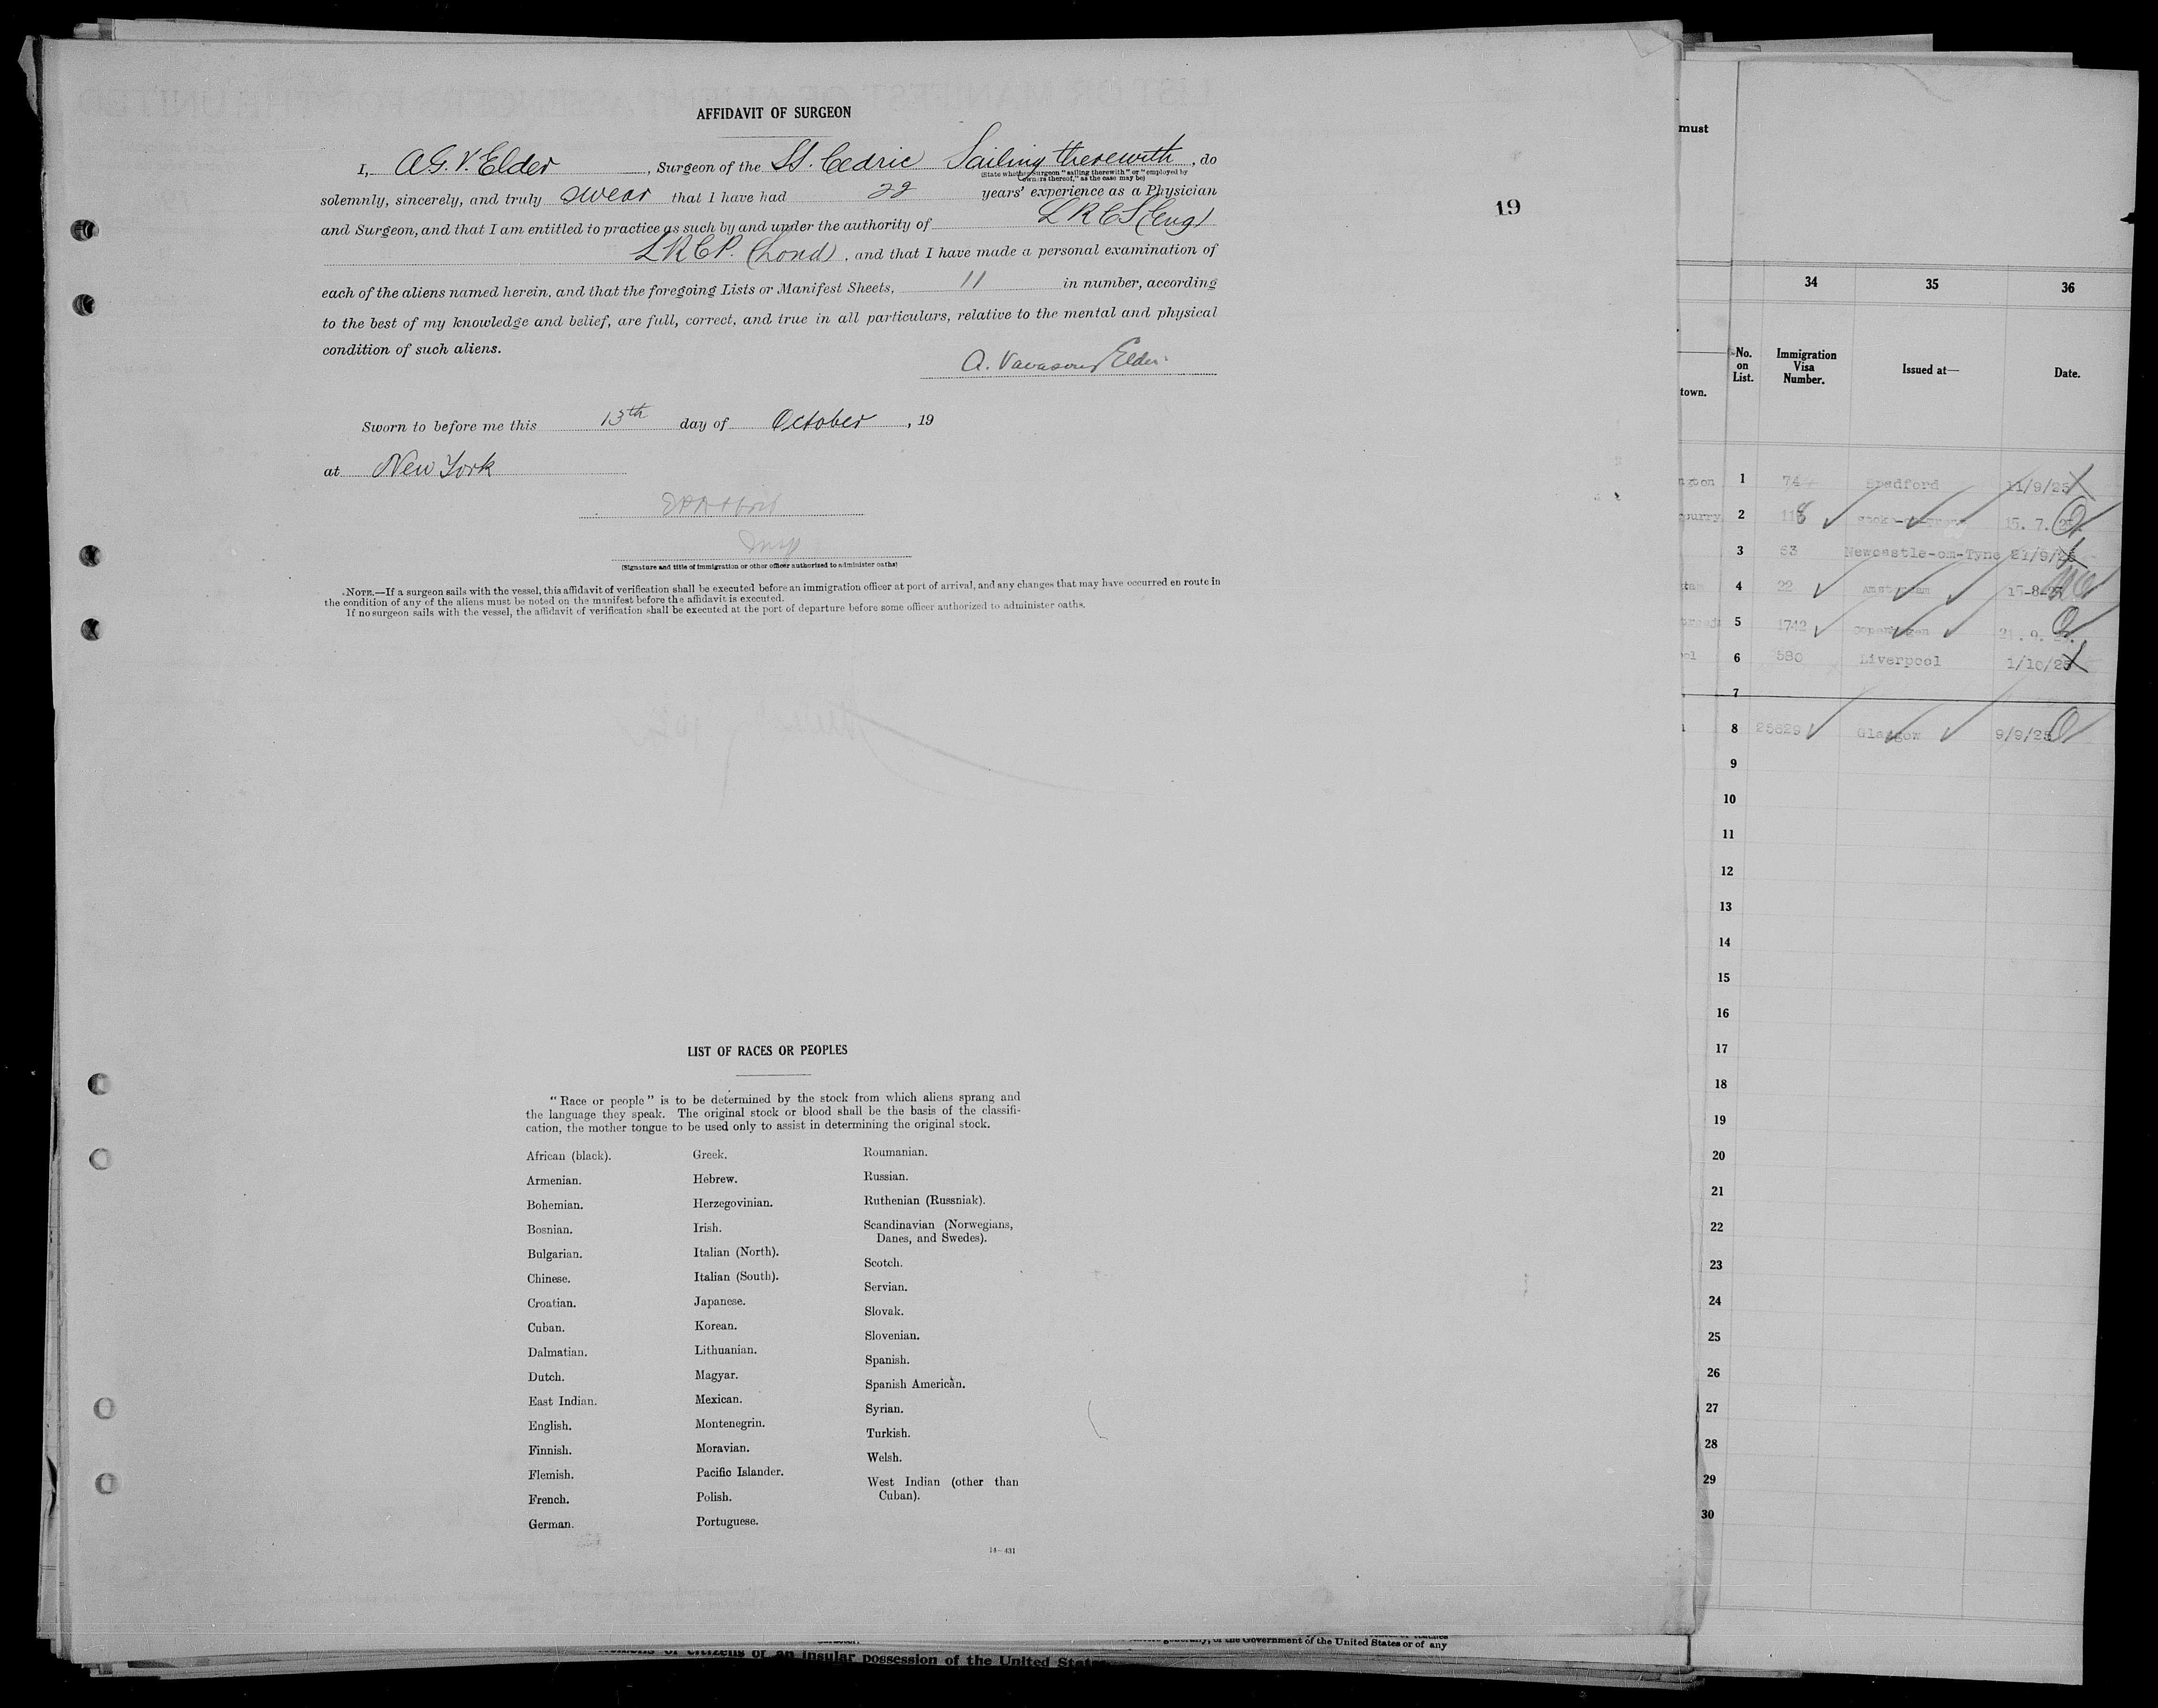 AFFIDAVIT OF SURGEON
I, A.G.V. Elder, Surgeon of the SS. Cedric Sailing therewith, do
(State whether surgeon "sailing therewith" or "employed by
owners thereof," as the case may be)
solemnly, sincerely, and truly swear that I have had 22 years' experience as a Physician
and Surgeon, and that I am entitled to practice as such by and under the authority of L R C S (Eng)
L R C P. (Lond), and that I have made a personal examination of
each of the aliens named herein, and that the foregoing Lists or Manifest Sheets, 11 in number, according
to the best of my knowledge and belief, are full, correct, and true in all particulars, relative to the mental and physical
condition of such aliens.
A. Vavasour Elder
Sworn to before me this 13th day of October, 19
at New York
Insp
(Signature and title of immigration or other officer authorized to administer oaths)
NOTE.—If a surgeon sails with the vessel, this affidavit of verification shall be executed before an immigration officer at port of arrival, and any changes that may have occurred en route in
the condition of any of the aliens must be noted on the manifest before the affidavit is executed.
If no surgeon sails with the vessel, the affidavit of verification shall be executed at the port of departure before some officer authorized to administer oaths.
19
LIST OF RACES OR PEOPLES
"Race or people" is to be determined by the stock from which aliens sprang and
the language they speak. The original stock or blood shall be the basis of the classifi-
cation, the mother tongue to be used only to assist in determining the original stock.
African (black).
Armenian.
Bohemian.
Bosnian.
Bulgarian.
Chinese.
Croatian.
Cuban.
Dalmatian.
Dutch.
East Indian.
English.
Finnish.
Flemish.
French.
German.
Greek.
Hebrew.
Herzegovinian.
Irish.
Italian (North).
Italian (South).
Japanese.
Korean.
Lithuanian.
Magyar.
Mexican.
Montenegrin.
Moravian.
Pacific Islander.
Polish.
Portuguese.
Roumanian.
Russian.
Ruthenian (Russniak).
Scandinavian (Norwegians,
Danes, and Swedes).
Scotch.
Servian.
Slovak.
Slovenian.
Spanish.
Spanish American.
Syrian.
Turkish.
Welsh.
West Indian (other than
Cuban).
14—431
of the Government of the United States or of any
of citizens of an insular possession of the United States
must
town.
34 35 36
No.
on
List.
Immigration
Visa
Number.
Issued at—
Date.
1 74 Bradford 11/9/25
2 118 15. 7. 25
3 53 Newcastle-om-Tyne 21/9/25
4 22 Amsterdam 15-8-25
5 1742 Copenhagen 21. 9. 25.
6 580 Liverpool 1/10/25
7
8 25629 Glasgow 9/9/25
9
10
11
12
13
14
15
16
17
18
19
20
21
22
23
24
25
26
27
28
29
30